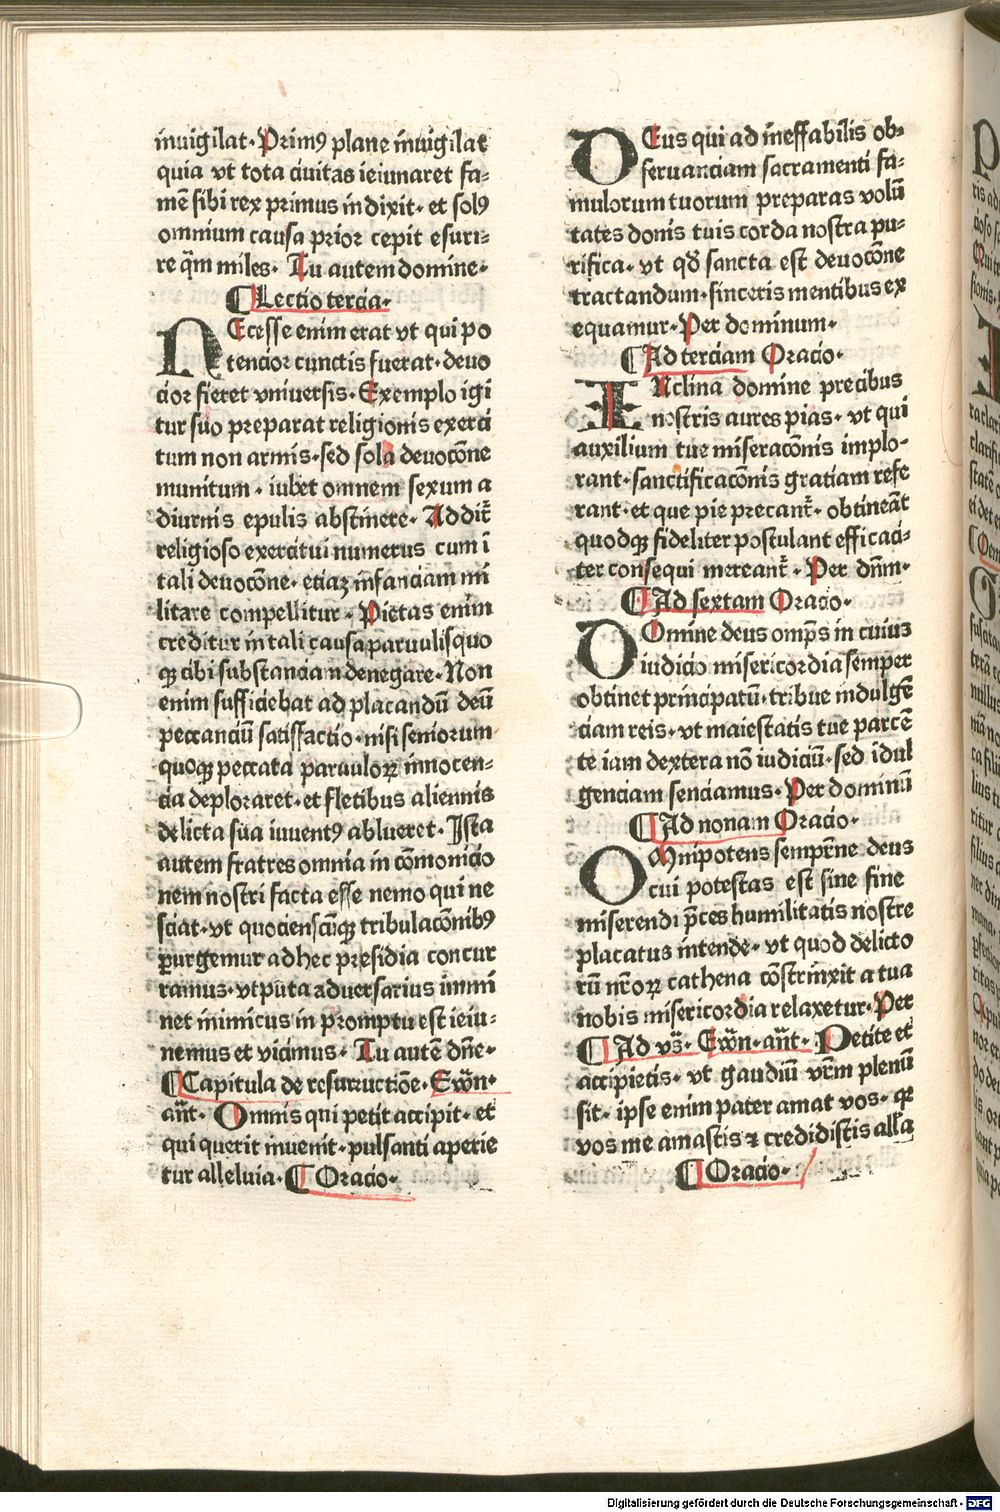 inuigilat. Primꝰ plane inuigilat
quia vt tota ciuitas ieiunaret fa⸗
mē sibi rex primus indixit. et solꝰ
omnium causa prior cepit esuri⸗
re q̄m miles. Tu autem domine.
¶ Lectio tercia.
NEcesse enim erat vt qui po
tencior cunctis fuerat. deuo
cior fieret vniuersis. Exemplo igi
tur suo preparat religionis exerci
tum non armis. sed sola deuocōne
munitum. iubet omnem sexum a
diurnis epulis abstinere. Addit᷑
religioso exercitui numerus cum ī
tali deuocōne. etiaꝫ infanciam mi
litare compellitur. Pietas enim
creditur in tali causa paruulis quo
qꝫ cibi substanciam denegare. Non
enim sufficiebat ad placandū deū
peccanciū satisfactio. nisi seniorum
quoqꝫ peccata paruuloꝝ innocen⸗
cia deploraret. et fletibus aliennis
delicta sua iuuentꝰ ablueret. Ista
autem fratres omnia in cōmonicio
nem nostri facta esse nemo qui ne
sciat. vt quociensciqꝫ tribulacōnibꝰ
ꝑurgemur ad hec presidia concur
ramus. vt puta aduersarius immi
net inimicus in promptu est ieiu⸗
nemus et vicimus. Tu autē dn̄e.
¶ Capitula de resurrectiōe. Ewn̄.
an̄t. Omnis qui petit accipit. et
qui querit inuenit. pulsanti aperie
tur alleluia. ¶ Oracio.
DEus qui ad ineffabilis ob⸗
seruanciam sacramenti fa⸗
mulorum tuorum preparas volū
tates donis tuis corda nostra pu⸗
rifica. vt qd̄ sancta est deuocōne
tractandum. sinceris mentibus ex
equamur. Per dominum.
¶ Ad terciam Oracio.
INclina domine precibus
nostris aures pias. vt qui
auxilium tue miseracōnis implo⸗
rant. sanctificacōnis gratiam refe
rant. et que pie precant᷑. obtineāt
quodqꝫ fideliter postulant efficaci⸗
ter consequi mereant᷑. Per dn̄m.
¶ Ad sextam Oracio.
DOmine deus omp̄s in cuius
iudicio misericordia semper
obtinet principatū. tribue indulgē
ciam reis. vt maiestatis tue parcē
te iam dextera nō iudiciū. sed īdul
genciam senciamus. Per dominū
¶ Ad nonam Oracio.
OMnipotens sempr̄ne deus
cui potestas est sine fine
miserendi p̄ces humilitatis nostre
placatus intende. vt quod delicto
rū nr̄oꝝ cathena cōstrinxit a tua
nobis misericordia relaxetur. Per
¶ Ad vs̄. Ewn̄. an̄t. Petite et
accipietis. vt gaudiū vr̄m plenū
sit. ipse enim pater amat vos. qꝛ
vos me amastis ⁊ credidistis alla
¶ Oracio.
Digitalisierung gefördert durch die Deutsche Forschungsgemeinschaft - DFG